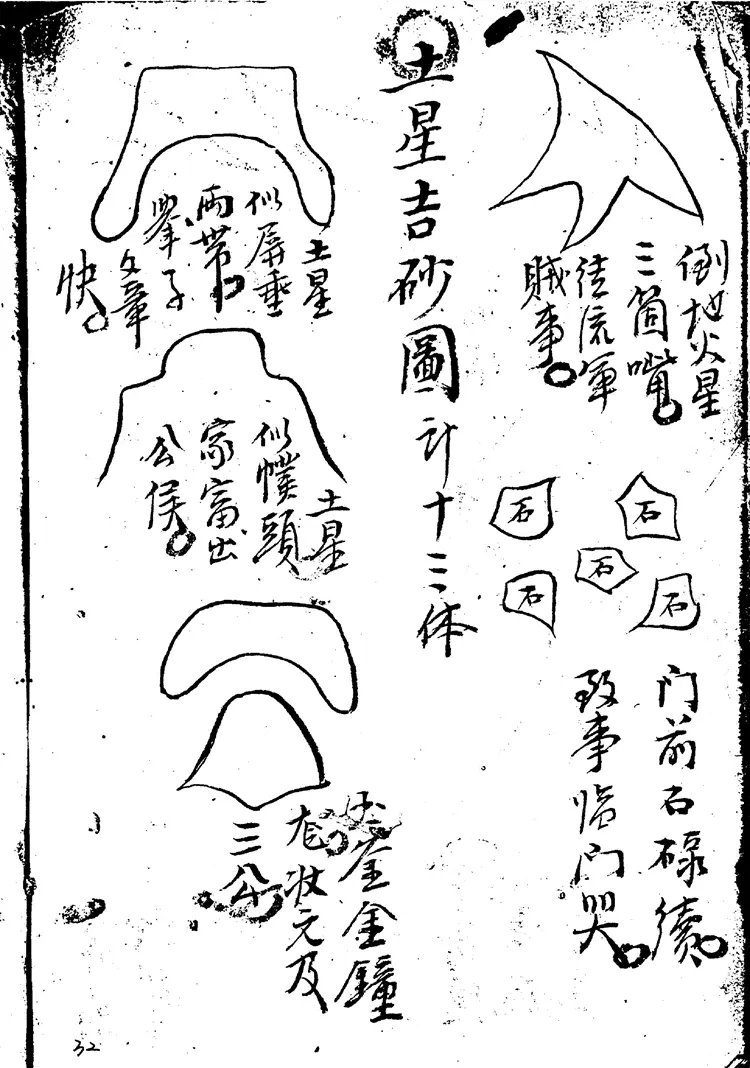 倒地火星
三箇嘴
徒流軍
賊事
石
石
石
石
石
门前石碌續
致事临门哭
土星吉砂圖計十三体
土星
似屏垂
兩帶
舉子
文章
快
土星
似幞頭
家富出
公侯
釜金鐘
状元及
三公
32